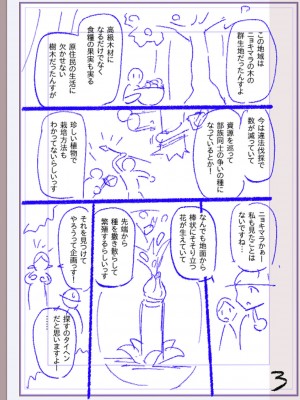 この地域は
ニョキマラの木の
群生地だったんすよ
高級木材に
なるだけでなく
食糧の果実も実る
原住民の生活に
欠かせない
樹木だったんすが
今は違法伐採で
数が減っていて
資源を巡って
部族同士の争いの種に
なっているとか!
珍しい植物で
栽培方法も
わかってないらしいっす
ニョキマラかぁー
私も見たことは
ないですね…
なんでも地面から
棒状にそそり立つ
花が生えていて
先端から
種を撒き散らして
繁殖するらしいっす
それを見つけて
やろうって企画っす!
探すのタイヘン
だと思いますよー!
3